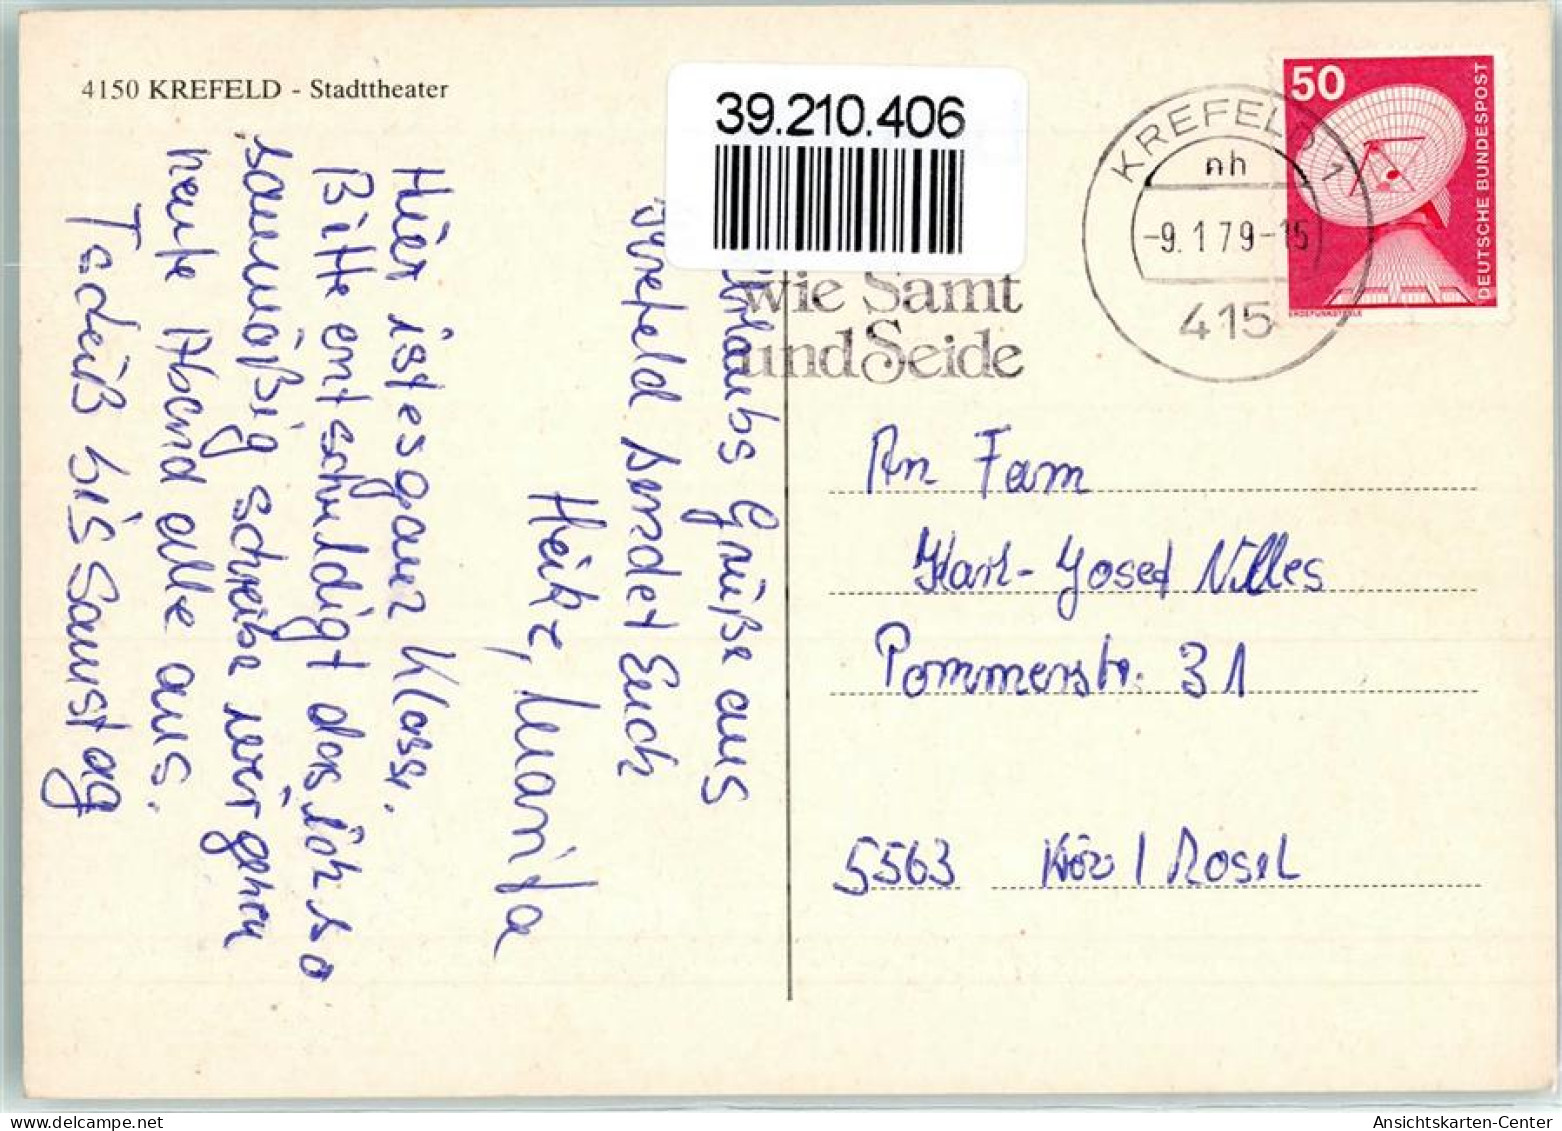 4150 KREFELD - Stadttheater
39.210.406
KREFELD 1
nh
-9.1.79-15
415
wie Samt
und Seide
50
DEUTSCHE BUNDESPOST
ERDEFUNKSTELLE
Urlaubs Grüße aus
Krefeld sendet Euch
Heike, Marita
Hier ist es ganz Klasse.
Bitte entschuldigt das ich so
saumäßig schreibe wir gehen
heute Abend alle aus.
Tschüß bis Samstag
An Fam
Karl-Josef Nilles
Pommerstr. 31
5563 Köv / Mosel
Ansichtskarten-Center